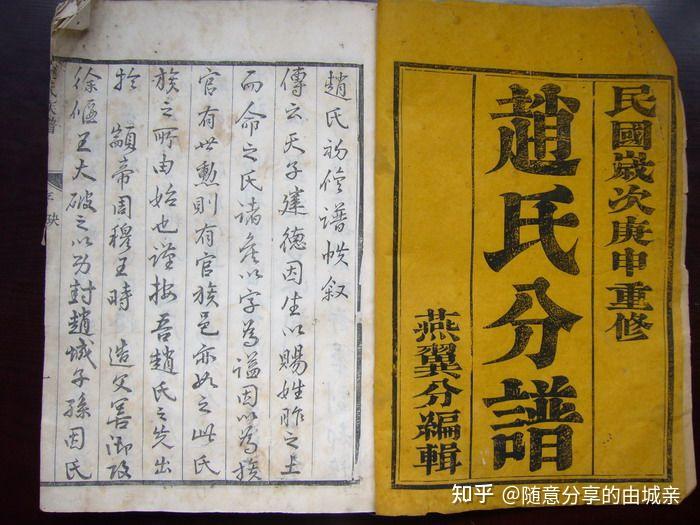 民國歲次庚申重修
趙氏分譜
燕翼分編輯
趙氏初修譜帙叙
傳云天子建德因生以賜姓胙之土
而命之氏諸侯以字為謚因以為族
官有世勲則有官族邑亦如之此氏
族之所由始也謹按吾趙氏之先出
於 顓帝周穆王時 造父善御攻
徐偃王大破之以功封趙城子孫因氏
知乎 @随意分享的由城亲